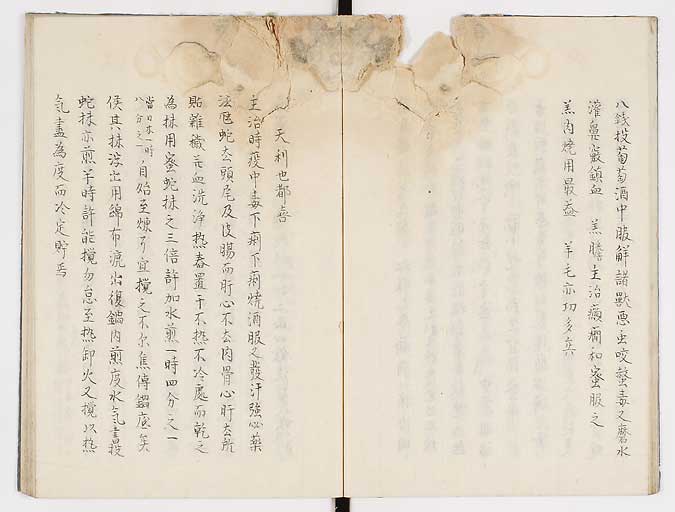 八錢投葡萄酒中服解諸獸惡虫咬螫毒又磨水
灌鼻竅鎮血 羔膽主治癲癇和蜜服之
羔肉燒用最益 羊毛亦功多矣
天利也都喜
主治時疫中毒下痢下痢燒酒服又發汗強心藥
法尾蛇去頭尾及皮腸而肝心不去肉骨心肝去
貼雜穢 血洗淨熱春置于不熱不冷處而乾之
為抹用蜜蛇抹之三倍許加水煎一時四分之一
當日本一時八分之一 自始至煉 宜攪之不尔焦傳鍋底矣
俟其抹浚出用綿布漉 復鍋內煎度水气盡投
蛇抹亦煎半時許能攪勿怠至熱卸火又攪以熱
气盡為度而冷定貯焉